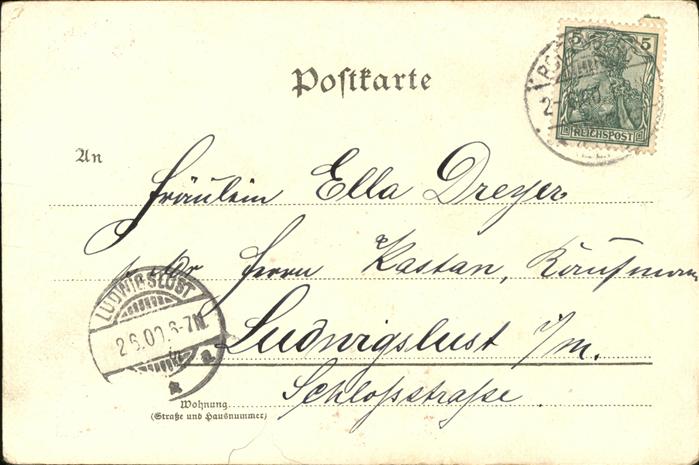 5 5
REICHSPOST
Postkarte
An
Fräulein Ella Dreyer
Herrn Kastan, Kaufmann
Ludwigslust i/m.
Schloßstraße.
Wohnung
(Straße und Hausnummer)
LUDWIGSLUST
2.6.00.6-7N.
a